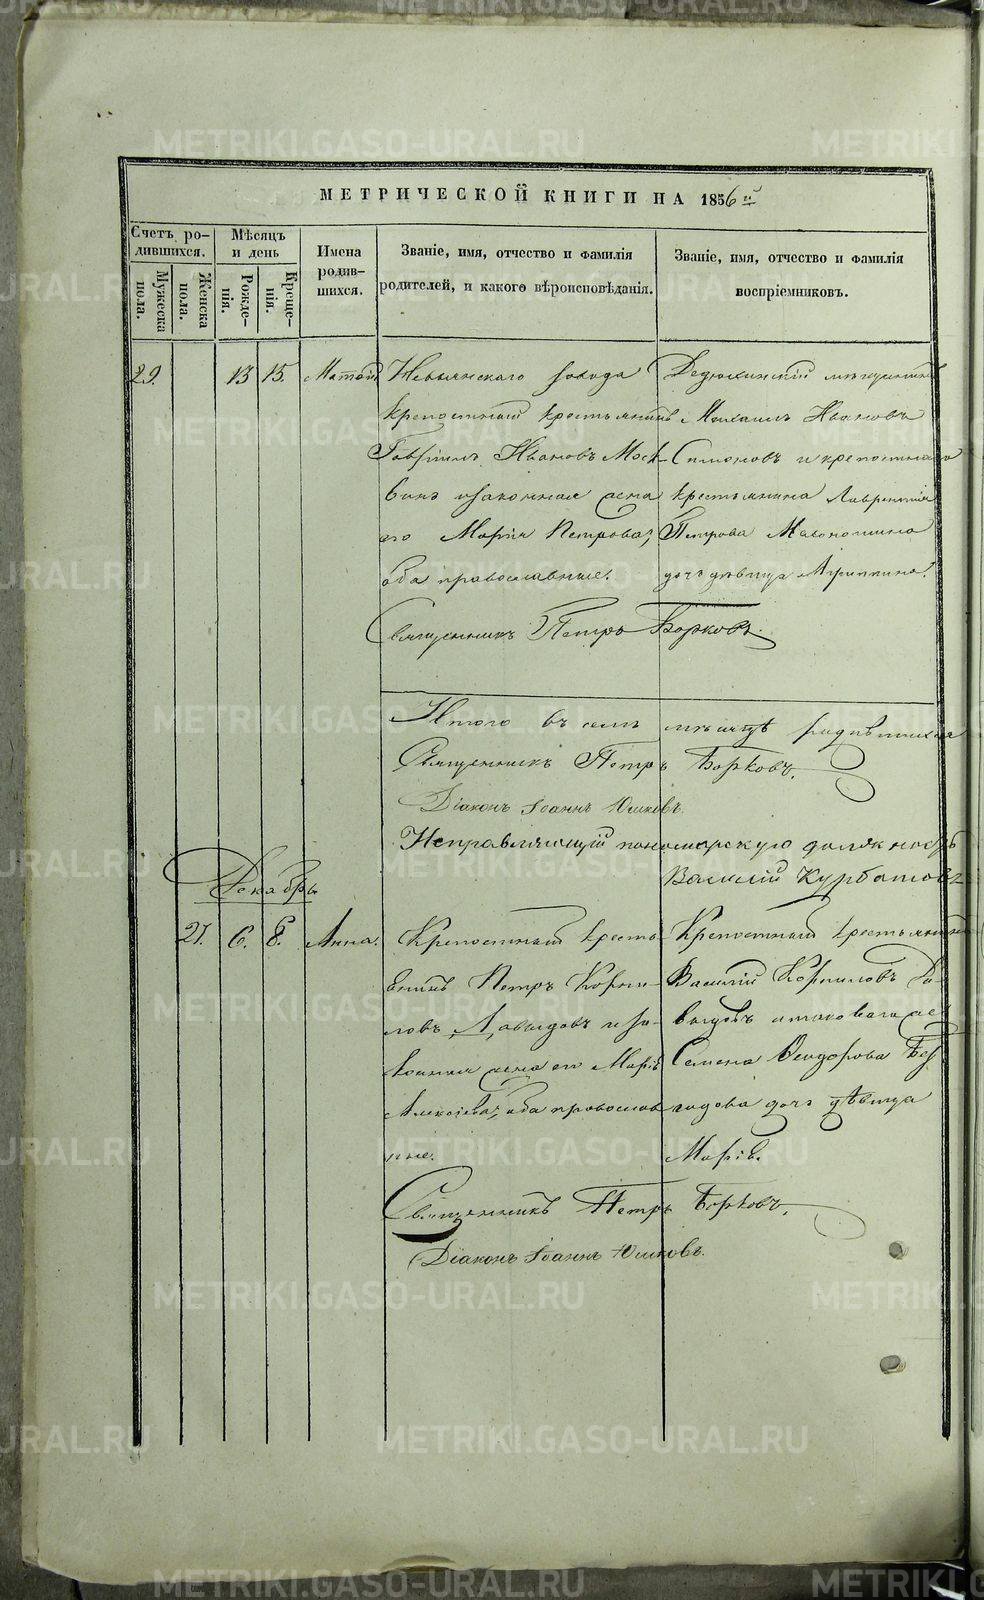 МЕТРИЧЕСКОЙ КНИГИ НА 1856й
Счетъ родившихся.
Мужеска пола.
Женска пола.
Мѣсяцъ и день
Рожденія.
Крещенія.
Имена родившихся.
Званіе, имя, отчество и фамилія
родителей, и какого вѣроисповѣданія.
Званіе, имя, отчество и фамилія
воспріемниковъ.
29. 13 15. Матѳій
Невьянскаго завода
крепостный крестьянинъ
Гавріилъ Ивановъ Моск-
винъ и законная жена
его Марія Петрова,
оба православные.
Дедюхинскій мѣщанинъ
Михаилъ Ивановъ
Симоновъ и крепостнаго
крестьянина Лаврентія
Петрова
дочь дѣвица Агрипина.
Священникъ Петръ Борковъ.
Итого въ семъ мѣсяцѣ родившихся
Священникъ Петръ Борковъ.
Діаконъ Іоаннъ Юшковъ.
Исправляющій пономарскую должность
Василій Курбатовъ
Декабрь
27. 6. 8. Анна.
Крепостный кресть-
янинъ Петръ Корни-
ловъ Давыдовъ и за-
конная жена его Марія
Алексіева, оба православ-
ные.
Крепостный крестьянинъ
Василій Корниловъ Да-
выдовъ и таковаго же
Семена Ѳеодорова
дочь дѣвица
Марія.
Священникъ Петръ Борковъ.
Діаконъ Іоаннъ Юшковъ.
METRIKI.GASO-URAL.RU